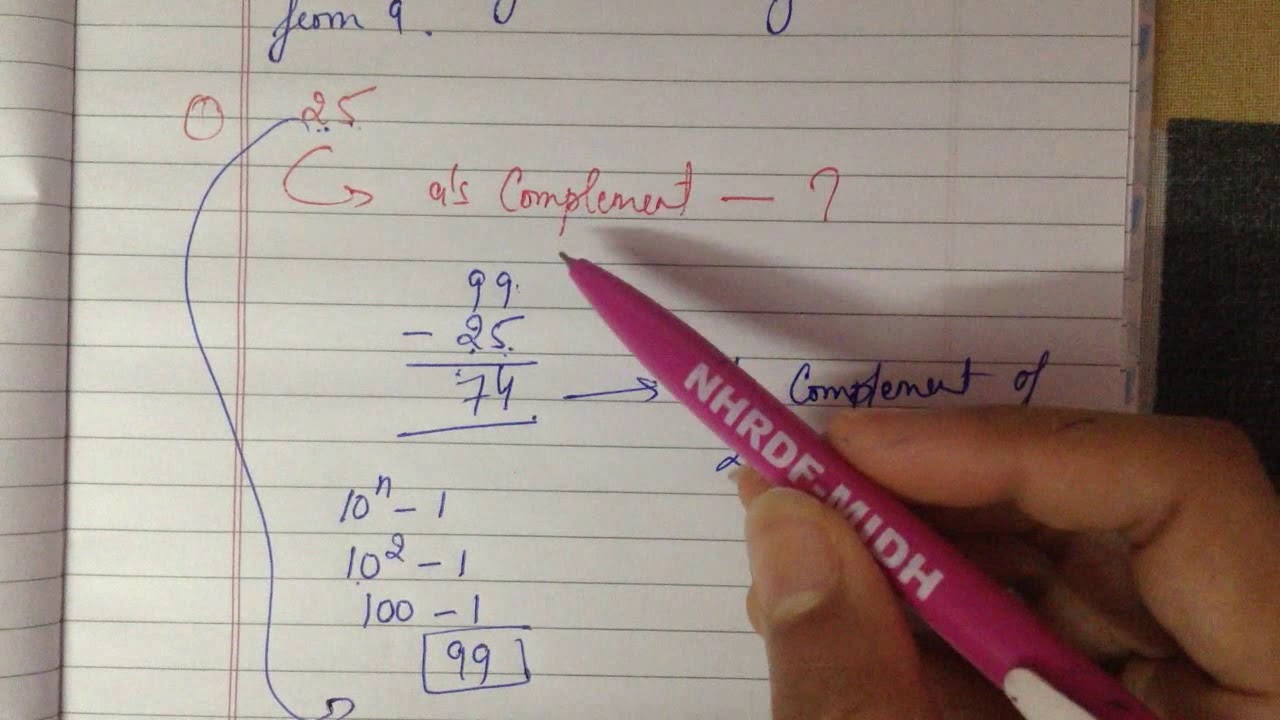 from 9.
① 25
9's Complement — ?
99
- 25
74 → Complement of
10ⁿ - 1
10² - 1
100 - 1
99
NHRDF-MIDH